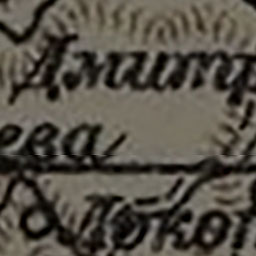 Дмитр
ева
Локот